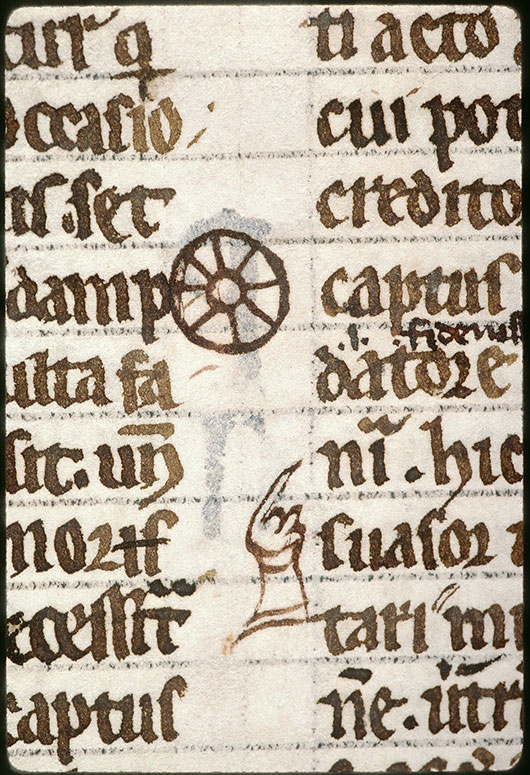 tur q̄
occasio
us. set
damp
ulta fa
sit. un̄
moris
ccessit̄
captus
ti acto
cui pot
credito
captus
.i. fideius
datore
nĩ. hic
suasor
tari m
ñe. int̄r